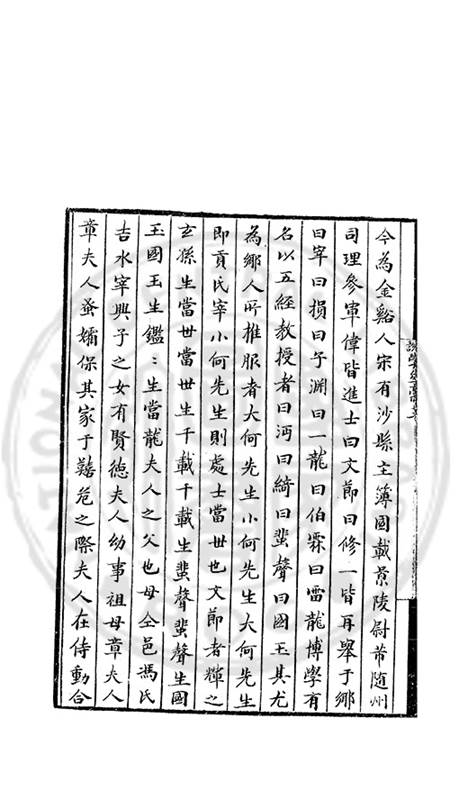 今為金谿人宋有沙縣主簿國載景陵尉芾随州
司理參軍偉皆進士曰文節曰修一皆再舉于鄉
曰宰曰損曰午淵曰一龍曰伯霖曰雷龍博學有
名以五經教授者曰沔曰綺曰蜚聲曰國玉其尤
為鄉人所推服者大何先生小何先生大何先生
即貢氏宰小何先生則處士當世也文節者輝之
玄孫生當世當世生千載千載生蜚聲蜚聲生國
玉國玉生鑑〻生當龍夫人之父也母仝邑馮氏
吉水宰興子之女有賢德夫人幼事祖母章夫人
章夫人蚤孀保其家于囏危之際夫人在侍動合